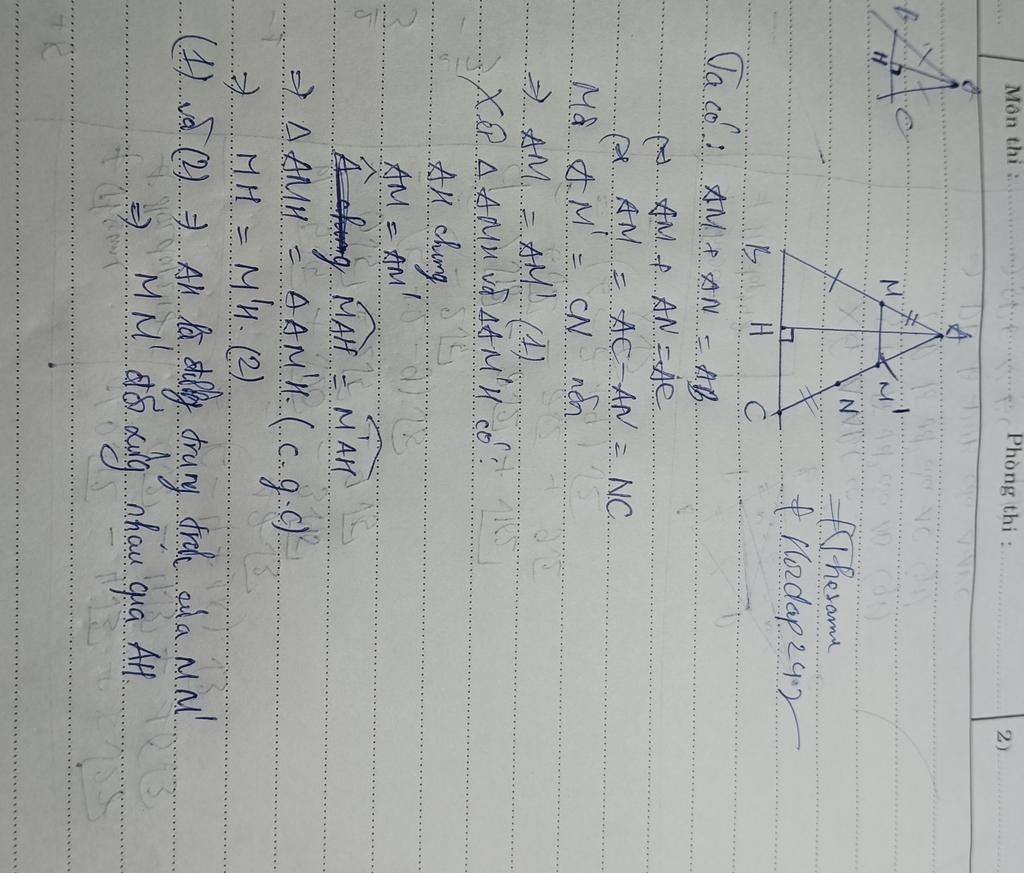 Môn thi :
Phòng thi :
2)
H
C
A
M
M'
N
B
H
C
+ Hoidap247
Ta có: AM + AN = AB
AM + AN = AC
AM = AC - AN = NC
Mà AM' = CN nên
=> AM = AM' (1)
Xét Δ AMH và ΔAM'H có:
AH chung
AM = AM'
MAH = M'AH
=> Δ AMH = Δ AM'H. (c.g.c)
=> MH = M'H. (2)
(1) và (2) => AH là đường trung trực của MM'
=> MM' đối xứng nhau qua AH.